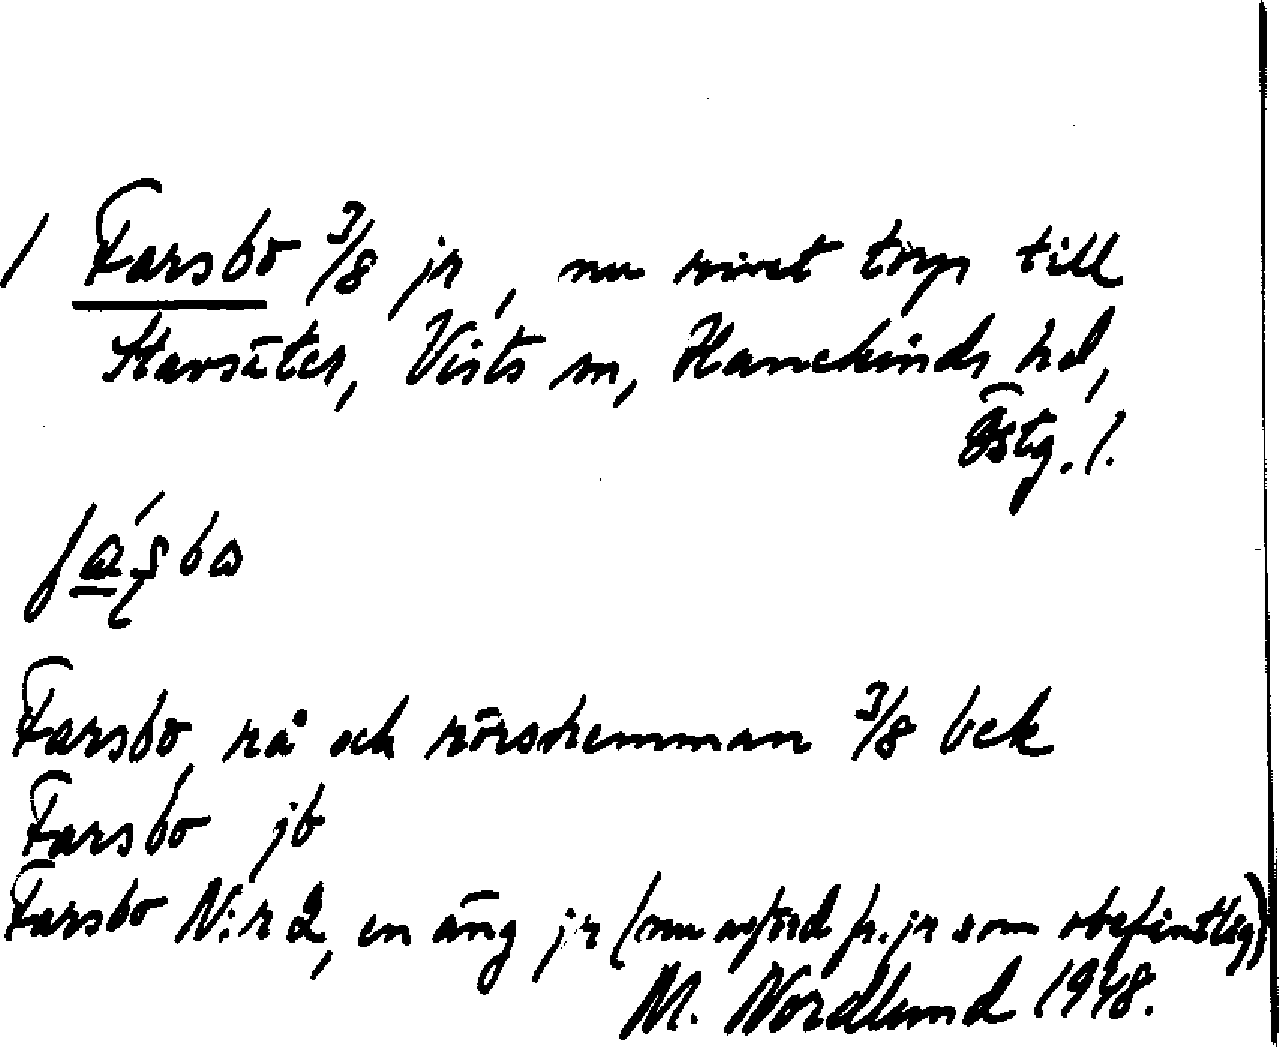 / Farsbo 3/8 jr, nu rivet torp till
Stavsäter, Vists sn, Hanekinds hd,
Östg. l.
Farsbo, rå och rörshemman 3/8 bek
Farsbo jb
Farsbo N:r 2, en äng jr (nu avförd fr. jr som obefintlig)
M. Nordlund 1948.